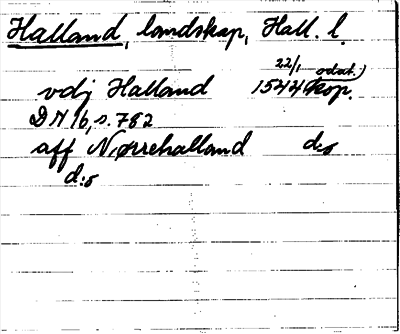 Halland, landskap, Hall. l.
vdj Halland 22/1 1544 (odat.) kop.
DN 16, s. 782
aff Nørrehalland d:o
d:o